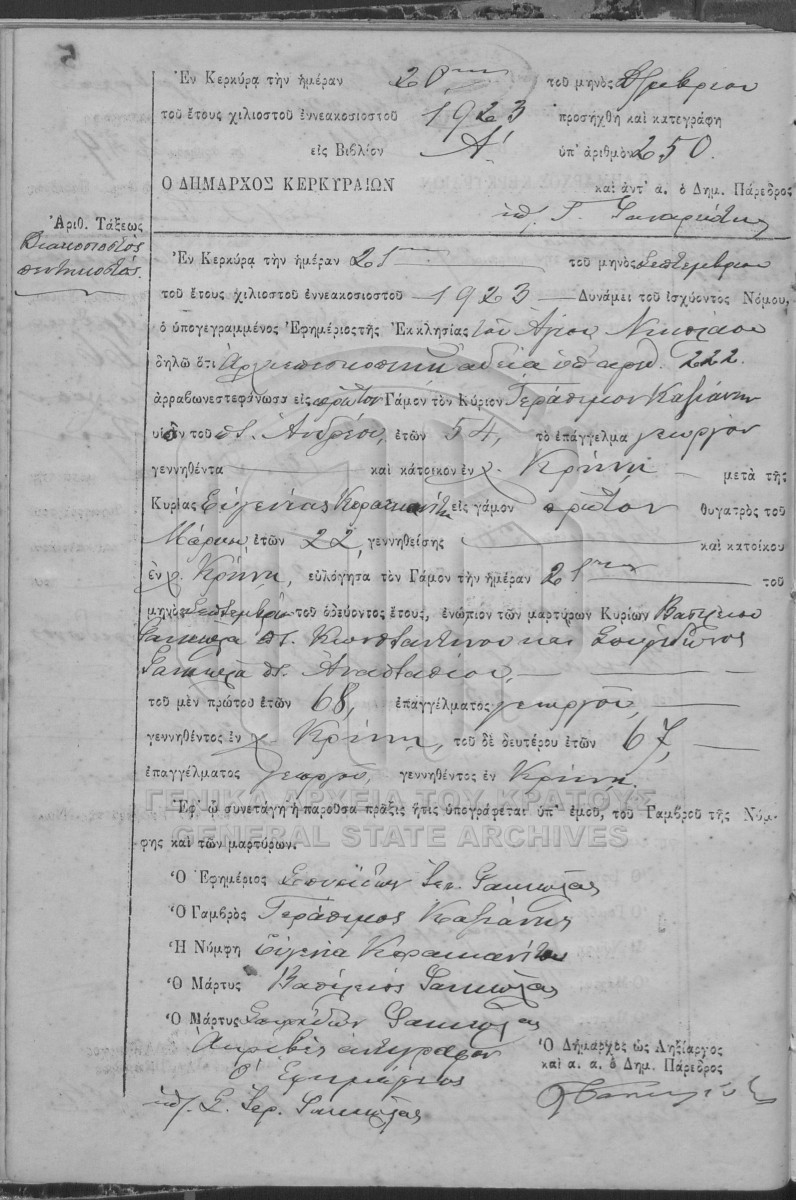 5
Ἐν Κερκύρᾳ τὴν ἡμέραν 20ην τοῦ μηνὸς 8βρίου
τοῦ ἔτους χιλιοστοῦ ἐννεακοσιοστοῦ 1923 προσήχθη καὶ κατεγράφη
εἰς Βιβλίον Α' ὑπ' ἀριθμὸν 250.
Ὁ ΔΗΜΑΡΧΟΣ ΚΕΡΚΥΡΑΙΩΝ καὶ ἀντ' ἀ. ὁ Δημ. Πάρεδρος
ὑπ. Γ.
Ἀριθ. Τάξεως
Διακοσιοστὸς
πεντηκοστός.
Ἐν Κερκύρᾳ τὴν ἡμέραν 21 τοῦ μηνὸς Σεπτεμβρίου
τοῦ ἔτους χιλιοστοῦ ἐννεακοσιοστοῦ 1923 Δυνάμει τοῦ ἰσχύοντος Νόμου,
ὁ ὑπογεγραμμένος Ἐφημέριος τῆς Ἐκκλησίας τοῦ Ἁγίου Νικολάου
δηλῶ ὅτι Ἀρχιεπισκοπικῇ ἀδείᾳ ὑπ' ἀριθ. 222
ἀρραβωνεστεφάνωσα εἰς πρῶτον Γάμον τὸν Κύριον Γεράσιμον Καββάνην
υἱὸν τοῦ π. Ἀνδρέου, ἐτῶν 54, τὸ ἐπάγγελμα γεωργὸν
γεννηθέντα καὶ κάτοικον ἐν χ. Κρήνη μετὰ τῆς
Κυρίας Εὐγενίας εἰς γάμον πρῶτον θυγατρὸς τοῦ
Μάρκου ἐτῶν 22, γεννηθείσης καὶ κατοίκου
ἐν χ. Κρήνη, εὐλόγησα τὸν Γάμον τὴν ἡμέραν 21ην τοῦ
μηνὸς Σεπτεμβρίου τοῦ ὁδεύοντος ἔτους, ἐνώπιον τῶν μαρτύρων Κυρίων Βασιλείου
π. Κωνσταντίνου καὶ Σπυρίδωνος
π. Ἀναστασίου,
τοῦ μὲν πρώτου ἐτῶν 68, ἐπαγγέλματος γεωργοῦ,
γεννηθέντος ἐν χ. Κρήνη, τοῦ δὲ δευτέρου ἐτῶν 67,
ἐπαγγέλματος γεωργοῦ, γεννηθέντος ἐν Κρήνη.
ΓΕΝΙΚΑ ΑΡΧΕΙΑ ΤΟΥ ΚΡΑΤΟΥΣ
Ἐφ' ᾧ συνετάγη ἡ παροῦσα πρᾶξις ἥτις ὑπογράφεται ὑπ' ἐμοῦ, τοῦ Γαμβροῦ τῆς Νύμ-
GENERAL STATE ARCHIVES
φης καὶ τῶν μαρτύρων.
Ὁ Ἐφημέριος Σπυρίδων Ἱερ.
Ὁ Γαμβρὸς Γεράσιμος Καββάνης
Ἡ Νύμφη Εὐγενία
Ὁ Μάρτυς Βασίλειος
Ὁ Μάρτυς Σπυρίδων
Ἀκριβὲς ἀντίγραφον
Ὁ Ἐφημέριος
ὑπ. Σ. Ἱερ.
Ὁ Δήμαρχος ὡς Ληξίαρχος
καὶ ἀ. ἀ. ὁ Δημ. Πάρεδρος